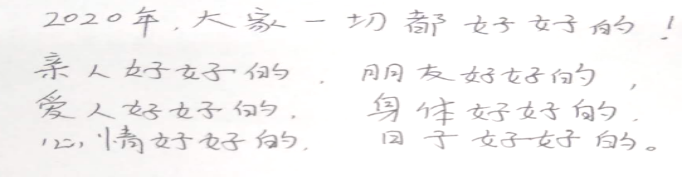 2020年，大家一切都好好的！
亲人好好的，朋友好好的，
爱人好好的，身体好好的，
心情好好的，日子好好的。